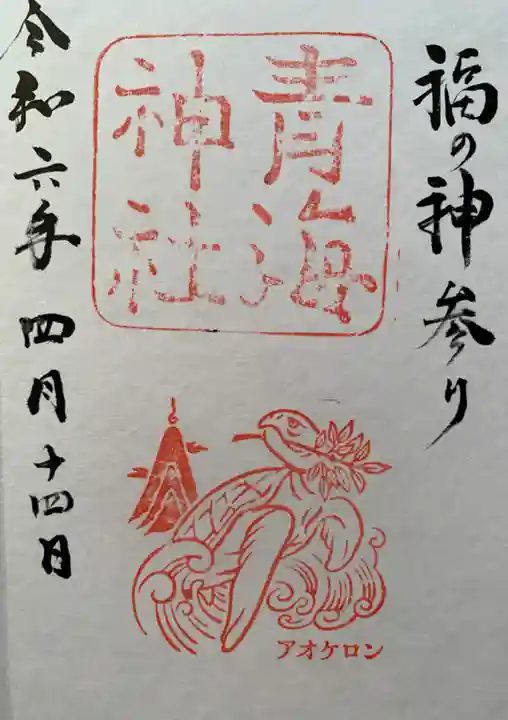 福の神参り
青海
神社
アオケロン
令和六年四月十四日